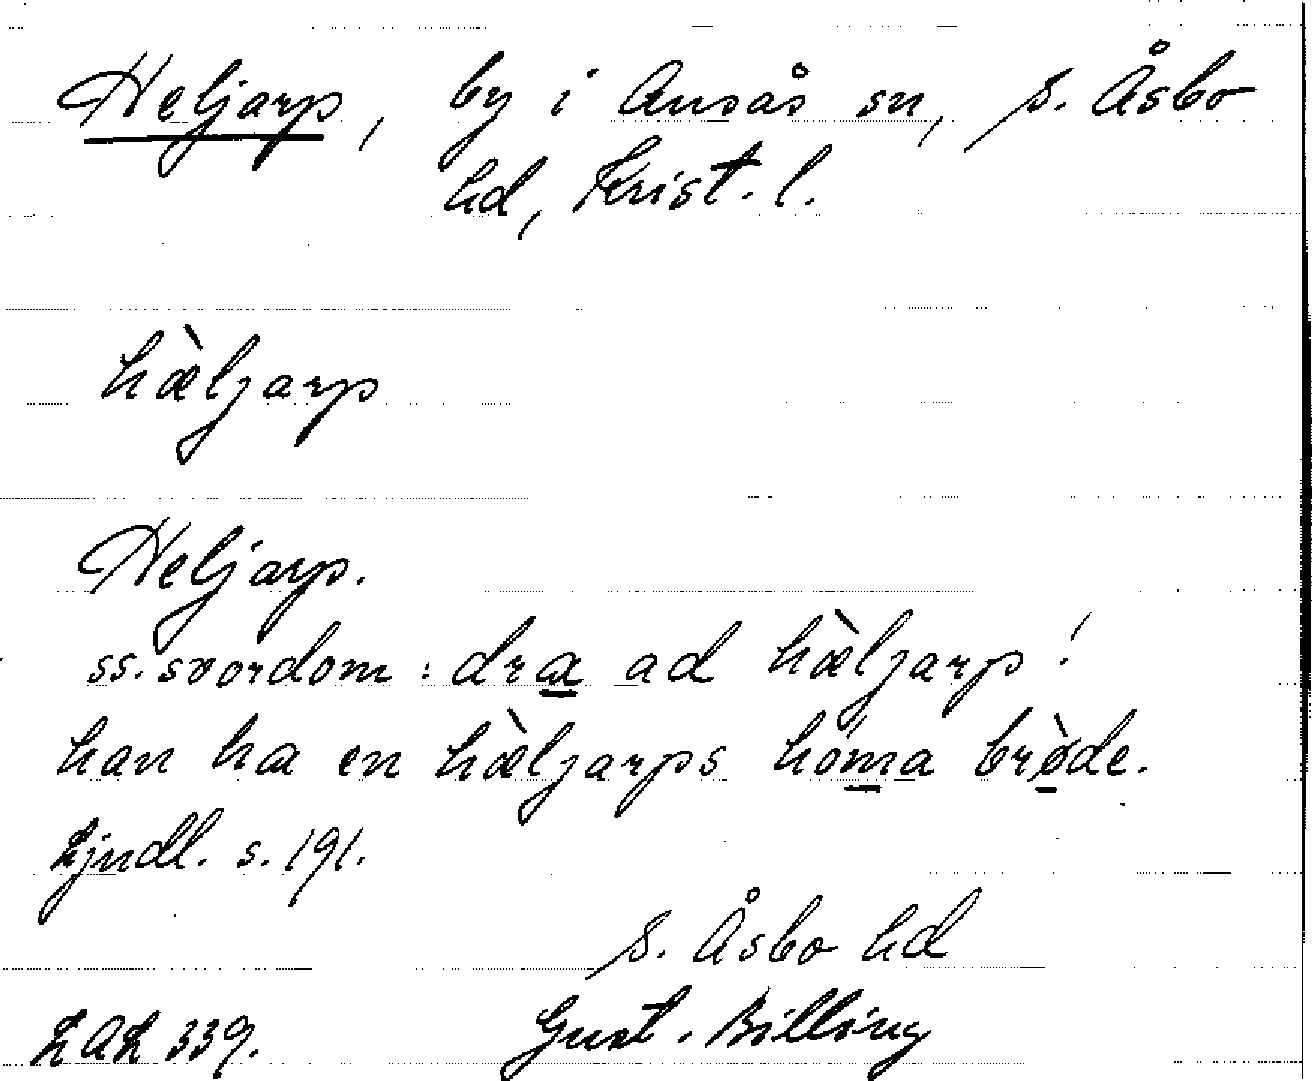 Heljarp, by i Ausås sn, S. Åsbo
hd, Krist. l.
hæ̀ljarp
Heljarp.
ss. svordom: dra ad hæ̀ljarp!
han ha en hæ̀ljarps hóma brø̀de.
Ljndl. s. 191.
S. Åsbo hd
LAL 339. Gust. Billing